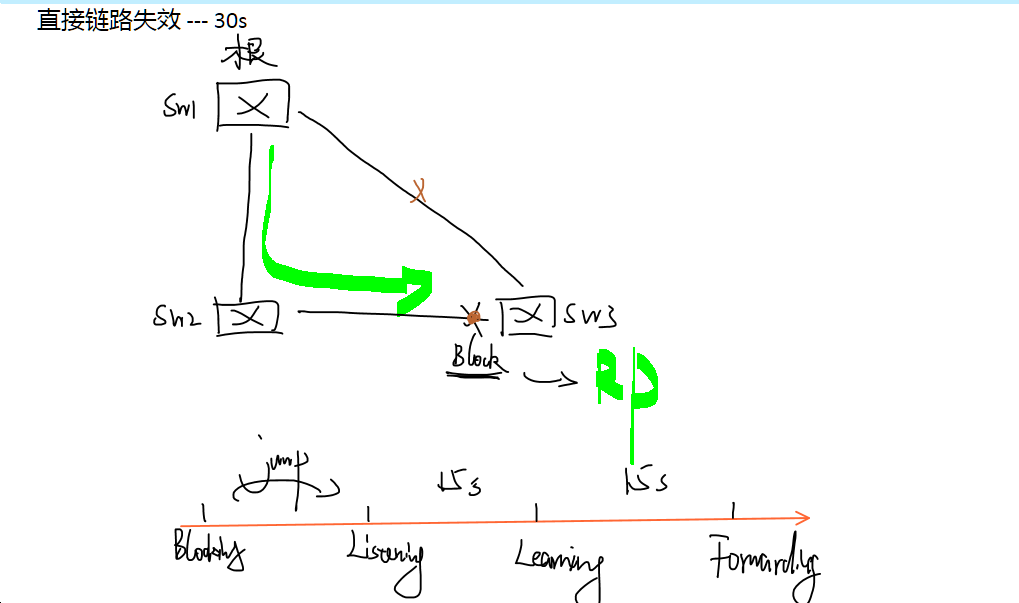 直接链路失效 --- 30s
根
SW1
X
SW2
SW3
Block
RP
jump
15s
15s
Blocking
Listening
Learning
Forwarding